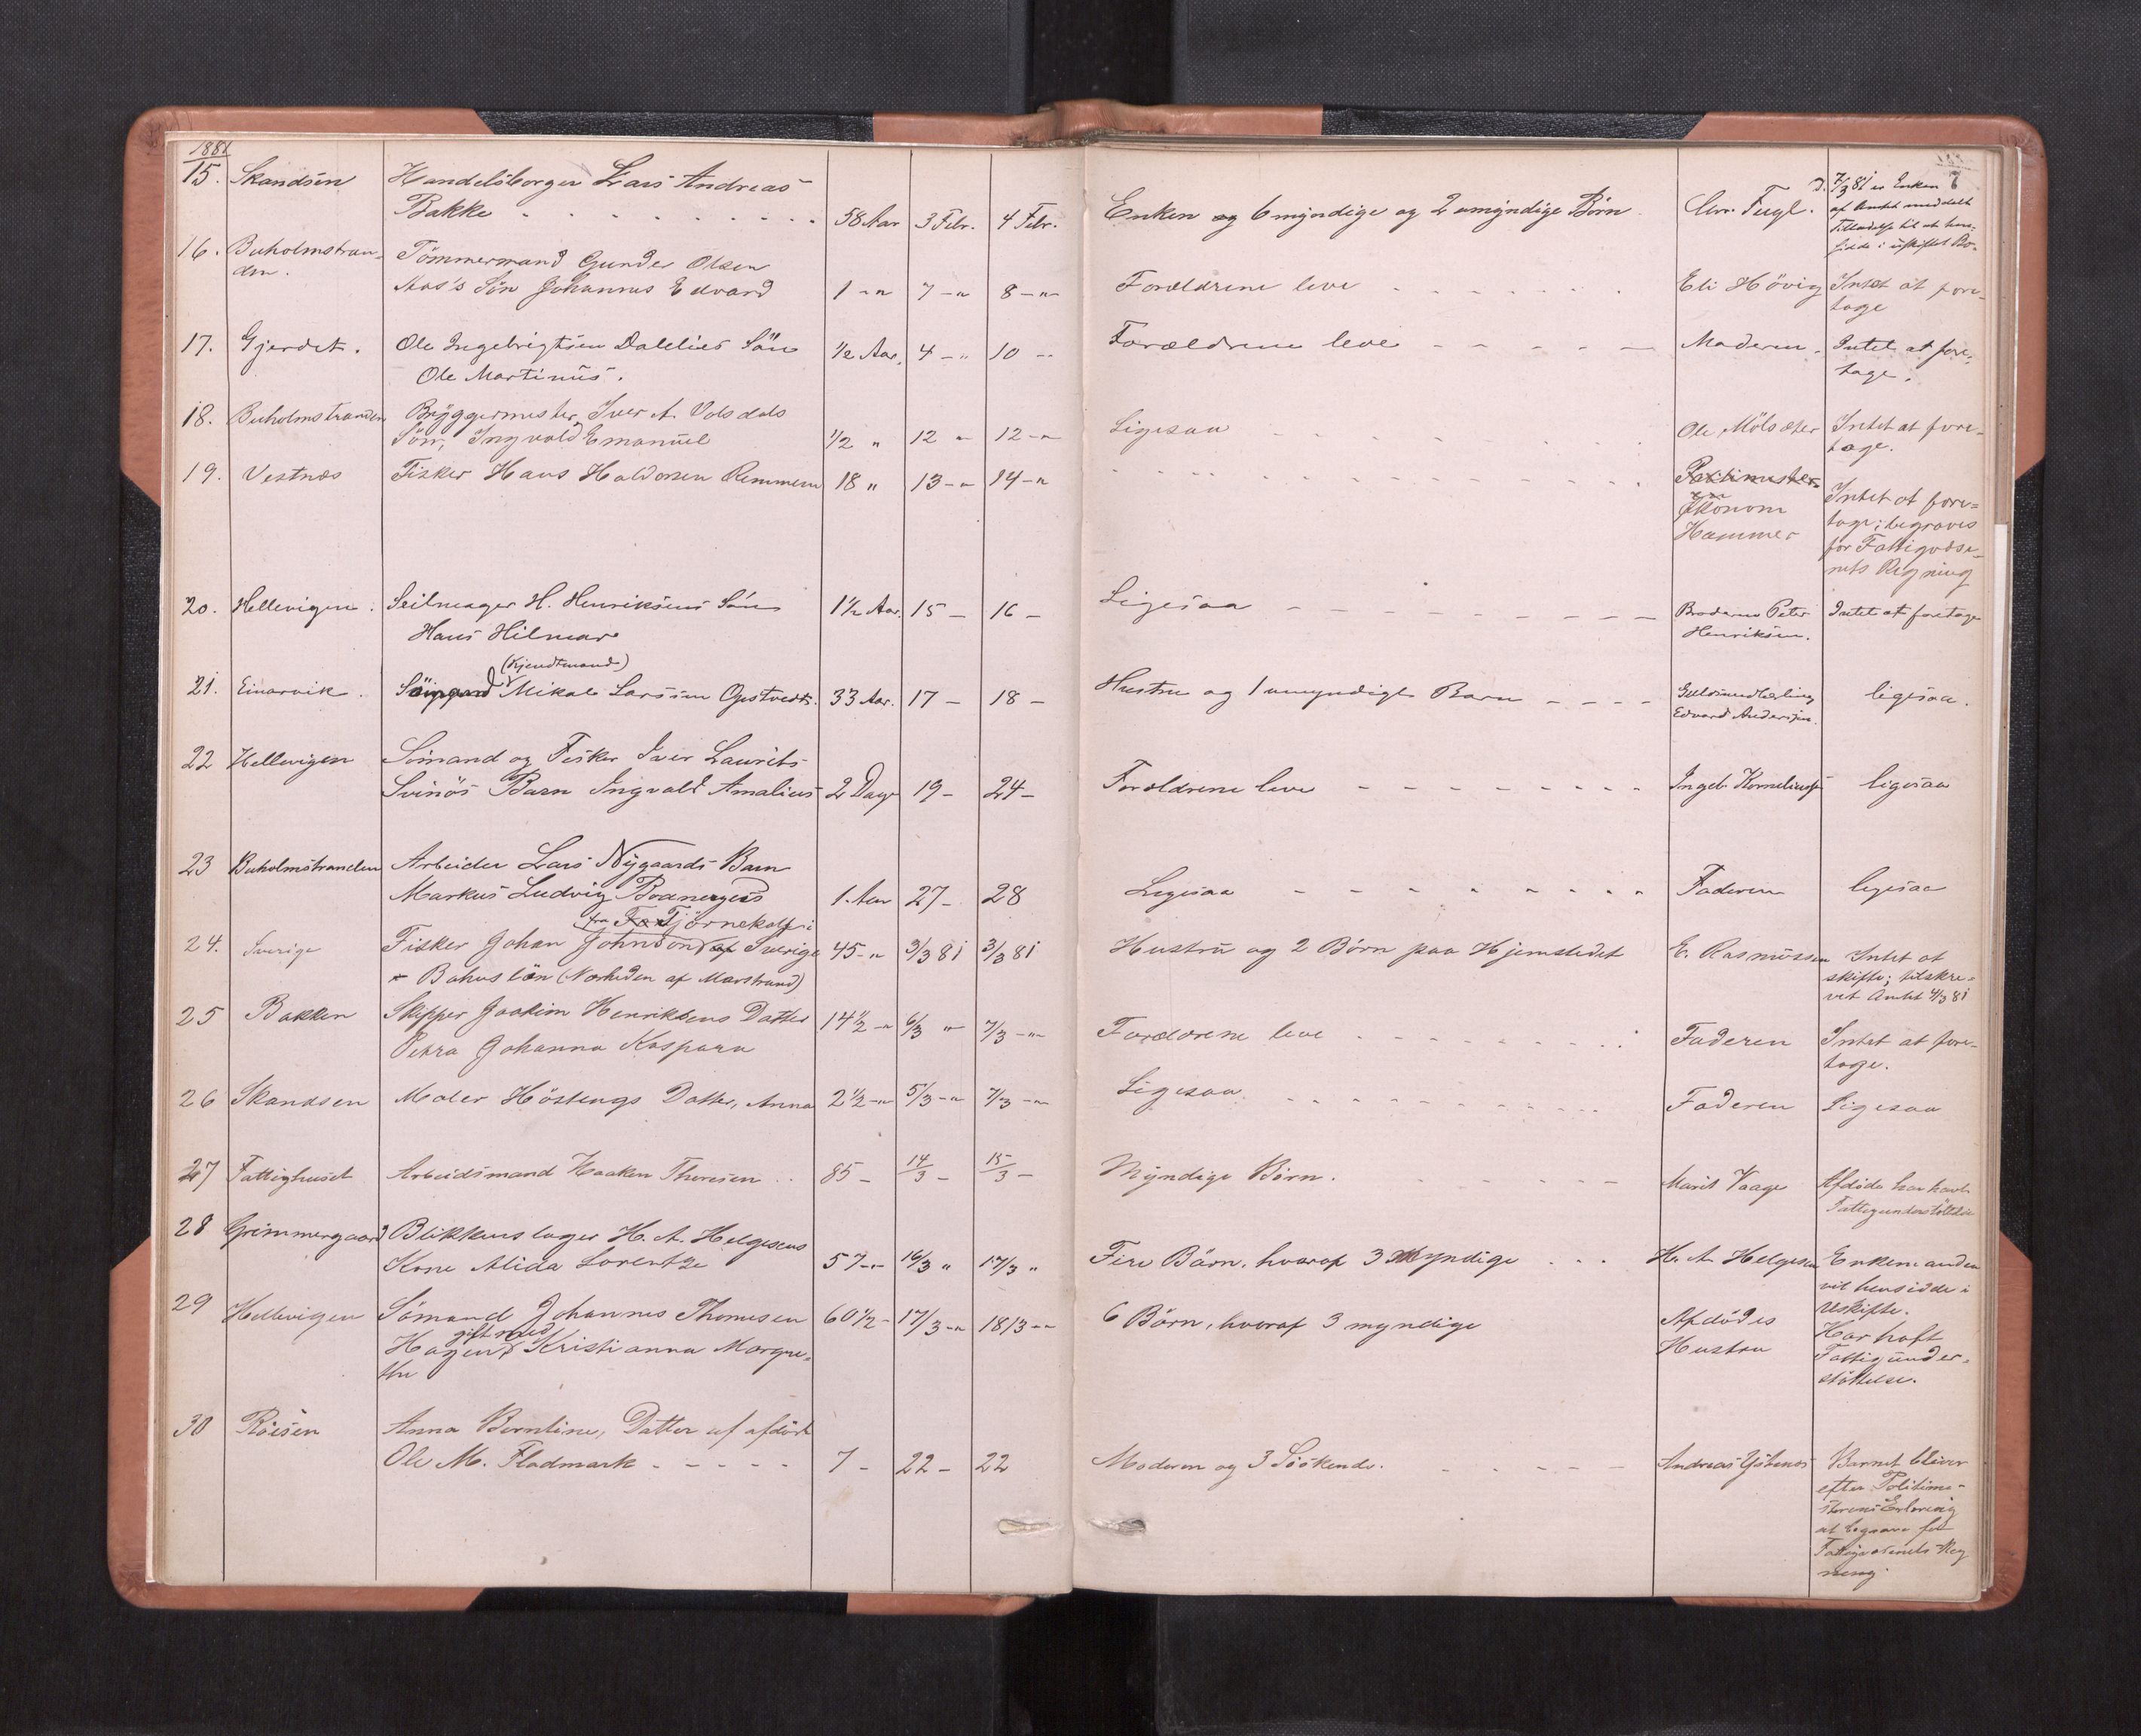 1881
15. Skandsen Handelsborger Lars Andreas
Bakke 58 Aar 3 Febr. 4 Febr. Enken og 6 myndige og 2 umyndige Børn. Chr. Fugl. D. 7/3 81 er Enken
af Amtet meddelt
Tilladelse til at hen-
sidde i uskiftet Bo.
7
16. Buholmstran-
den. Tömmermand Gunder Olsen
Aas's Sön Johannes Edvard 1 -"- 7 -"- 8 -"- Forældrene leve Eli Hövig Intet at fore-
tage
17. Gjerdet. Ole Ingebrigtsen Dalelies Sön
Ole Martinus. 1/2 Aar. 4 -"- 10 -- Forældrene leve Moderen. Intet at fore-
tage.
18. Buholmstranden Bryggermester Iver A. Volsdals
Sön, Ingvald Emanuel 1/2 " 12 " 12 -"- Ligesaa Ole Mölsæter Intet at fore-
tage.
19. Vestnæs Fisker Hans Haldorsen Remmem 18 " 13 -"- 14 -"-
Økonom
Hammer Intet at fore-
tage; begraves
for Fattigvæse-
nets Regning
20. Hellevigen. Seilmager H. Henriksens Sön
Hans Hilmar 1 1/2 Aar. 15 - 16 - Ligesaa Broderen Peter
Henriksen. Intet at foretage
21. Einarvik. (Kjendtmand)
Mikal Larssen Opstvedt. 33 Aar. 17 - 18 - Hustru og 1 umyndigt Barn Guldsmedlærling
Edvard Andersen. ligesaa.
22 Hellevigen Sömand og Fisker Iver Laurits
Svinös Barn Ingvald Amalius 2 Dage 19 - 24 - Forældrene leve Ingeb. Korneliusen ligesaa
23 Buholmstranden Arbeider Lars Nygaards Barn
Markus Ludvig Boanerges 1. Aar 27 - 28 Ligesaa Faderen ligesaa
24. Sverige fra Tjörnekalf i
Fisker Johan Johnson af Sverige 45 -"- 3/3 81 3/3 81 Hustru og 2 Børn paa Hjemstedet E. Rasmussen Intet at
skifte; tilskre-
vet Amtet 4/3 81
Bohus län (Nærheden af Marstrand)
25 Bakken Skipper Joakim Henriksens Datter
Petra Johanna Kaspara 14 1/2 -"- 6/3 " 7/3 -"- Forældrene leve Faderen Intet at fore-
tage.
26 Skandsen Maler Höstengs Datter, Anna 2 1/2 -"- 5/3 -"- 7/3 -"- Ligesaa Faderen Ligesaa
27 Fattighuset Arbeidsmand Haaken Theresen 85 - 14/3 - 15/3 - Myndige Börn. Marit Vaage Afdöde har havt
Fattigunderstöttelse
28 Grimmergaard Blikkenslager H. A. Helgesens
Kone Alida Lorentze 57 -"- 16/3 " 17/3 " Fire Börn, hvoraf 3 Myndige H. A Helgesen Enkemanden
vil hensidde i
Uskifte.
29 Hellevigen Sömand Johannes Thomesen
Hagen gift med Kristianna Margre-
the 60 1/2 - 17/3 -"- 18/3 -"- 6 Börn, hvoraf 3 myndige Afdödes
Hustru Har haft
Fattigunder-
stöttelse.
30 Röisen Anna Berntine, Datter af afdöde
Ole M. Fladmark 7 - 22 - 22 Moderen og 3 Söskende. Andreas Barnet bliver
efter Politime-
sterens Erklæring
at begrave for
Fattigvæsenets Reg
ning.